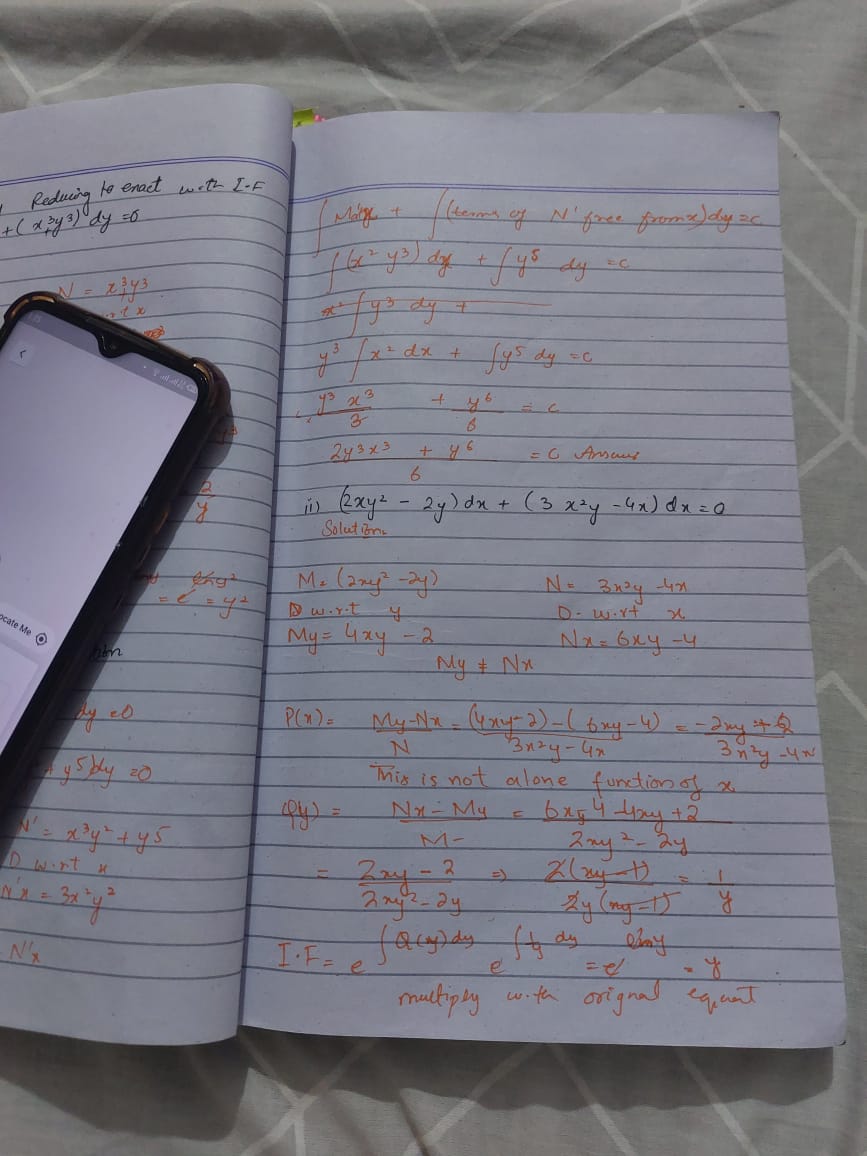 Reducing to enact with I.F
+(x³+y³) dy =0
N = x³+y³
w.r.t x
2
y
= e = y²
dy =0
+ y⁵)dy =0
N' = x³y² + y⁵
D w.r.t x
N'x = 3x²y²
N'x
∫ M'dx + ∫(terms of N' free from x) dy = c
∫(x² y³) dx + ∫y⁵ dy = c
x² ∫y³ dy +
y³ ∫x² dx + ∫y⁵ dy = c
y³ x³/3 + y⁶/6 = c
2y³x³ + y⁶/6 = C Answer
ii) (2xy² - 2y) dx + (3x²y - 4x) dx = 0
Solution:
M = (2xy² - 2y) N = 3x²y - 4x
D w.r.t y D. w.r.t x
My = 4xy - 2 Nx = 6xy - 4
My ≠ Nx
P(x) = My-Nx/N = (4xy-2)-(6xy-4)/3x²y-4x = -2xy+2/3x²y-4x
This is not alone function of x
Q(y) = Nx - My/M = 6xy-4-4xy+2/2xy²-2y
= 2xy-2/2xy²-2y => 2(xy-1)/2y(xy-1) = 1/y
I.F = e ∫Q(y)dy e ∫1/y dy = e lny = y
multiply with orignal equant
ocate Me